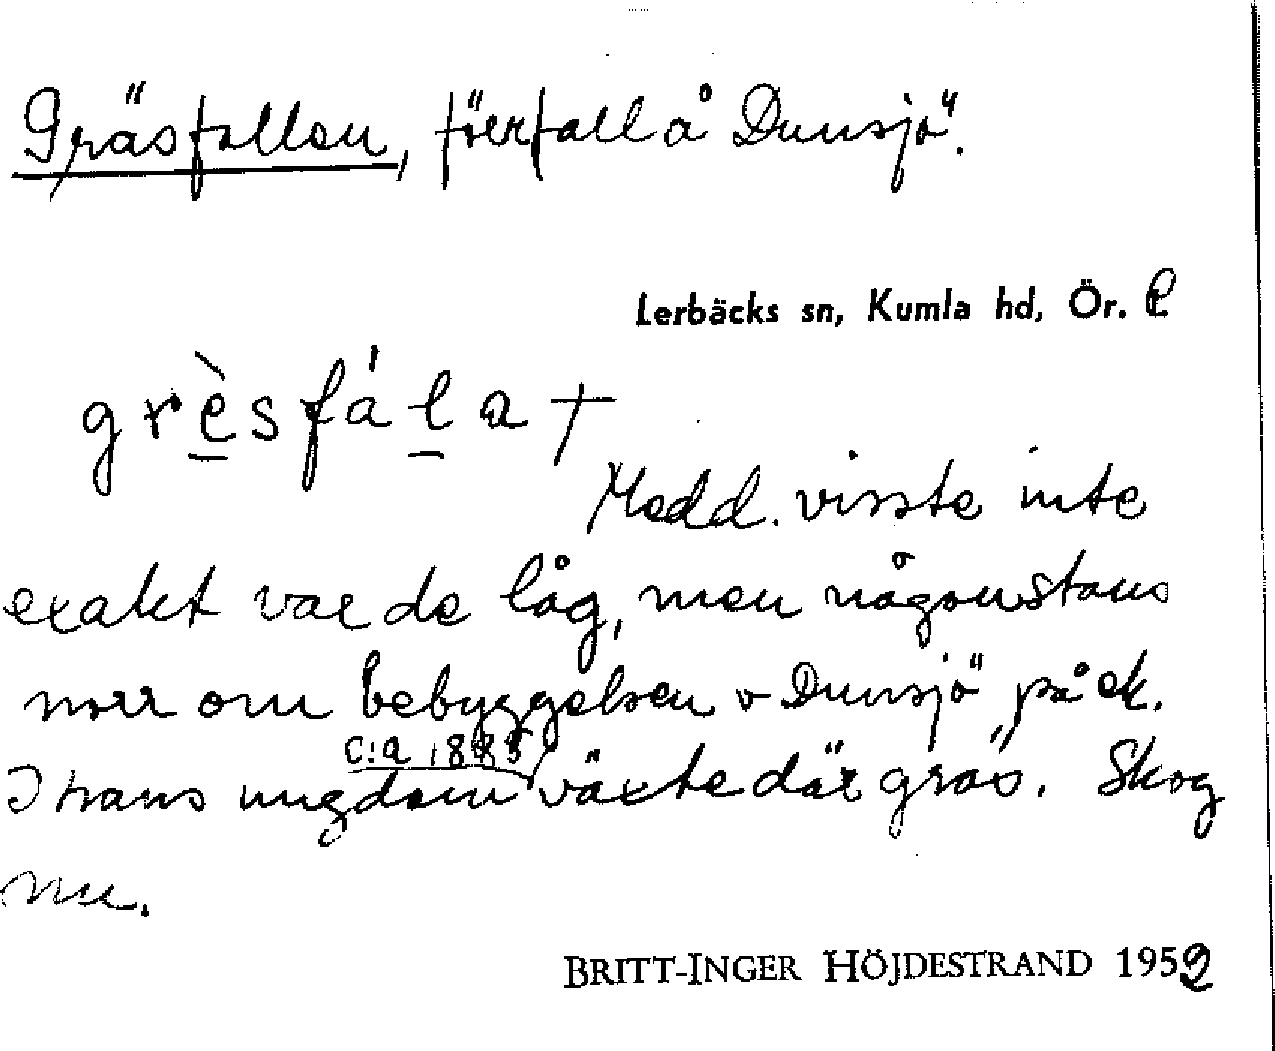 Gräsfallen, förfall å Dunsjö.
Lerbäcks sn, Kumla hd, Ör. l
grèsfála†
Medd. visste inte
exakt var de låg, men någonstans
norr om bebyggelsen v Dunsjö på ek.
c:a 1885
I hans ungdom växte där gräs. Skog
nu.
BRITT-INGER HÖJDESTRAND 1952